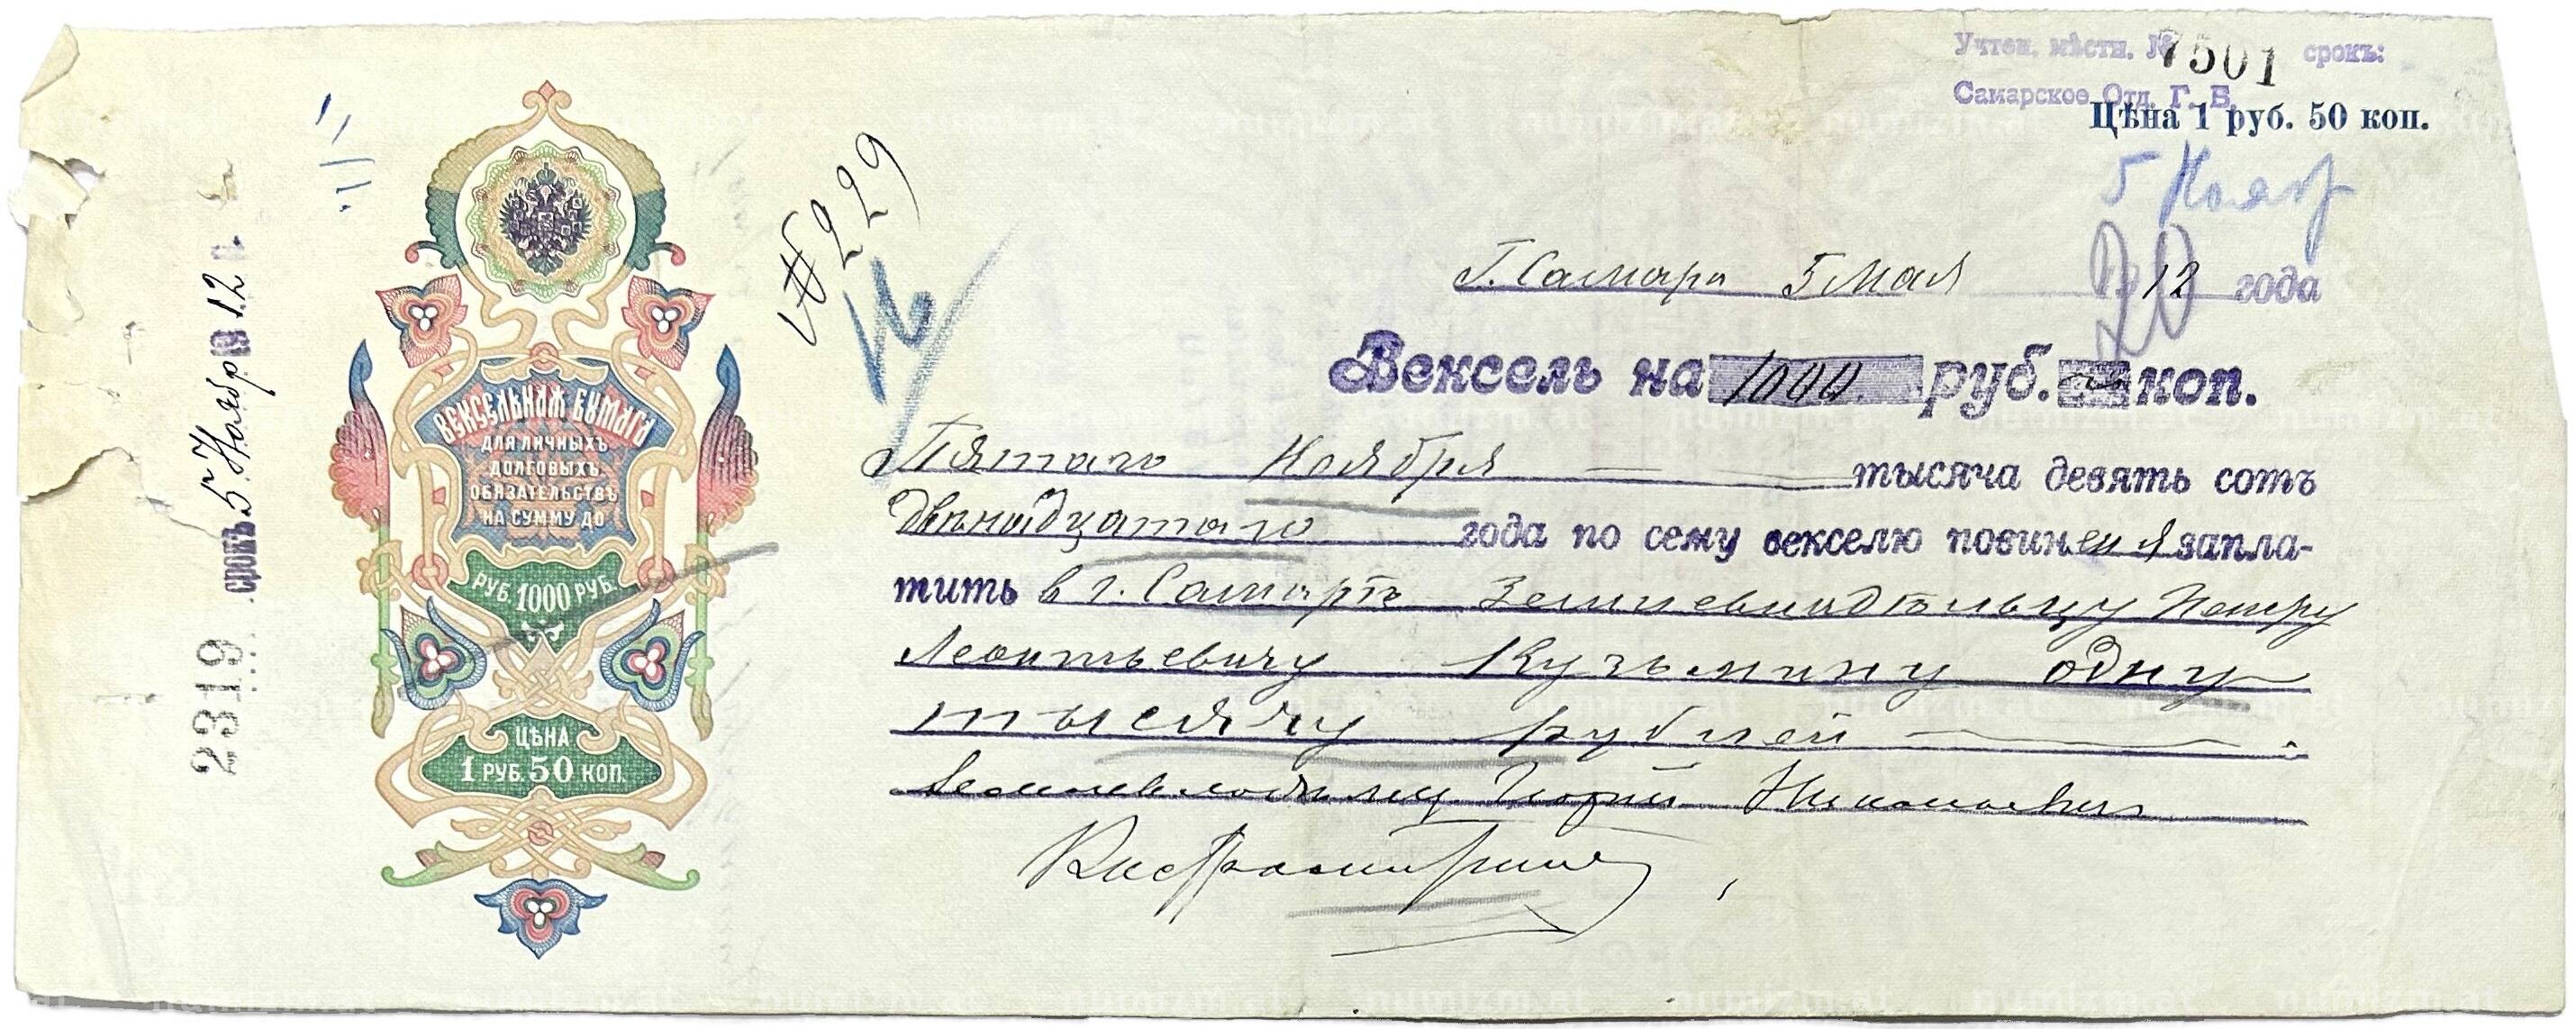 Учтен. мѣстн. № 7501 срокъ:
Самарское Отд. Г. Б.
Цѣна 1 руб. 50 коп.
5 Нояб
20
№ 229
Г. Самара 5 Мая 12 года
Вексель на 1000 руб. коп.
Пятаго Ноября тысяча девять сотъ
двѣнадцатаго года по сему векселю повиненъ я запла-
тить в г. Самарѣ Землевладѣльцу Петру
Леонтьевичу Кузьмину одну
тысячу рублей
Землевладѣлец Николаевич
2319 срокъ 5 Нояб 1912 г.
ВЕКСЕЛЬНАЯ БУМАГА
ДЛЯ ЛИЧНЫХЪ
ДОЛГОВЫХЪ
ОБЯЗАТЕЛЬСТВЪ
НА СУММУ ДО
РУБ. 1000 РУБ.
ЦѢНА
1 РУБ. 50 КОП.
numizm.at